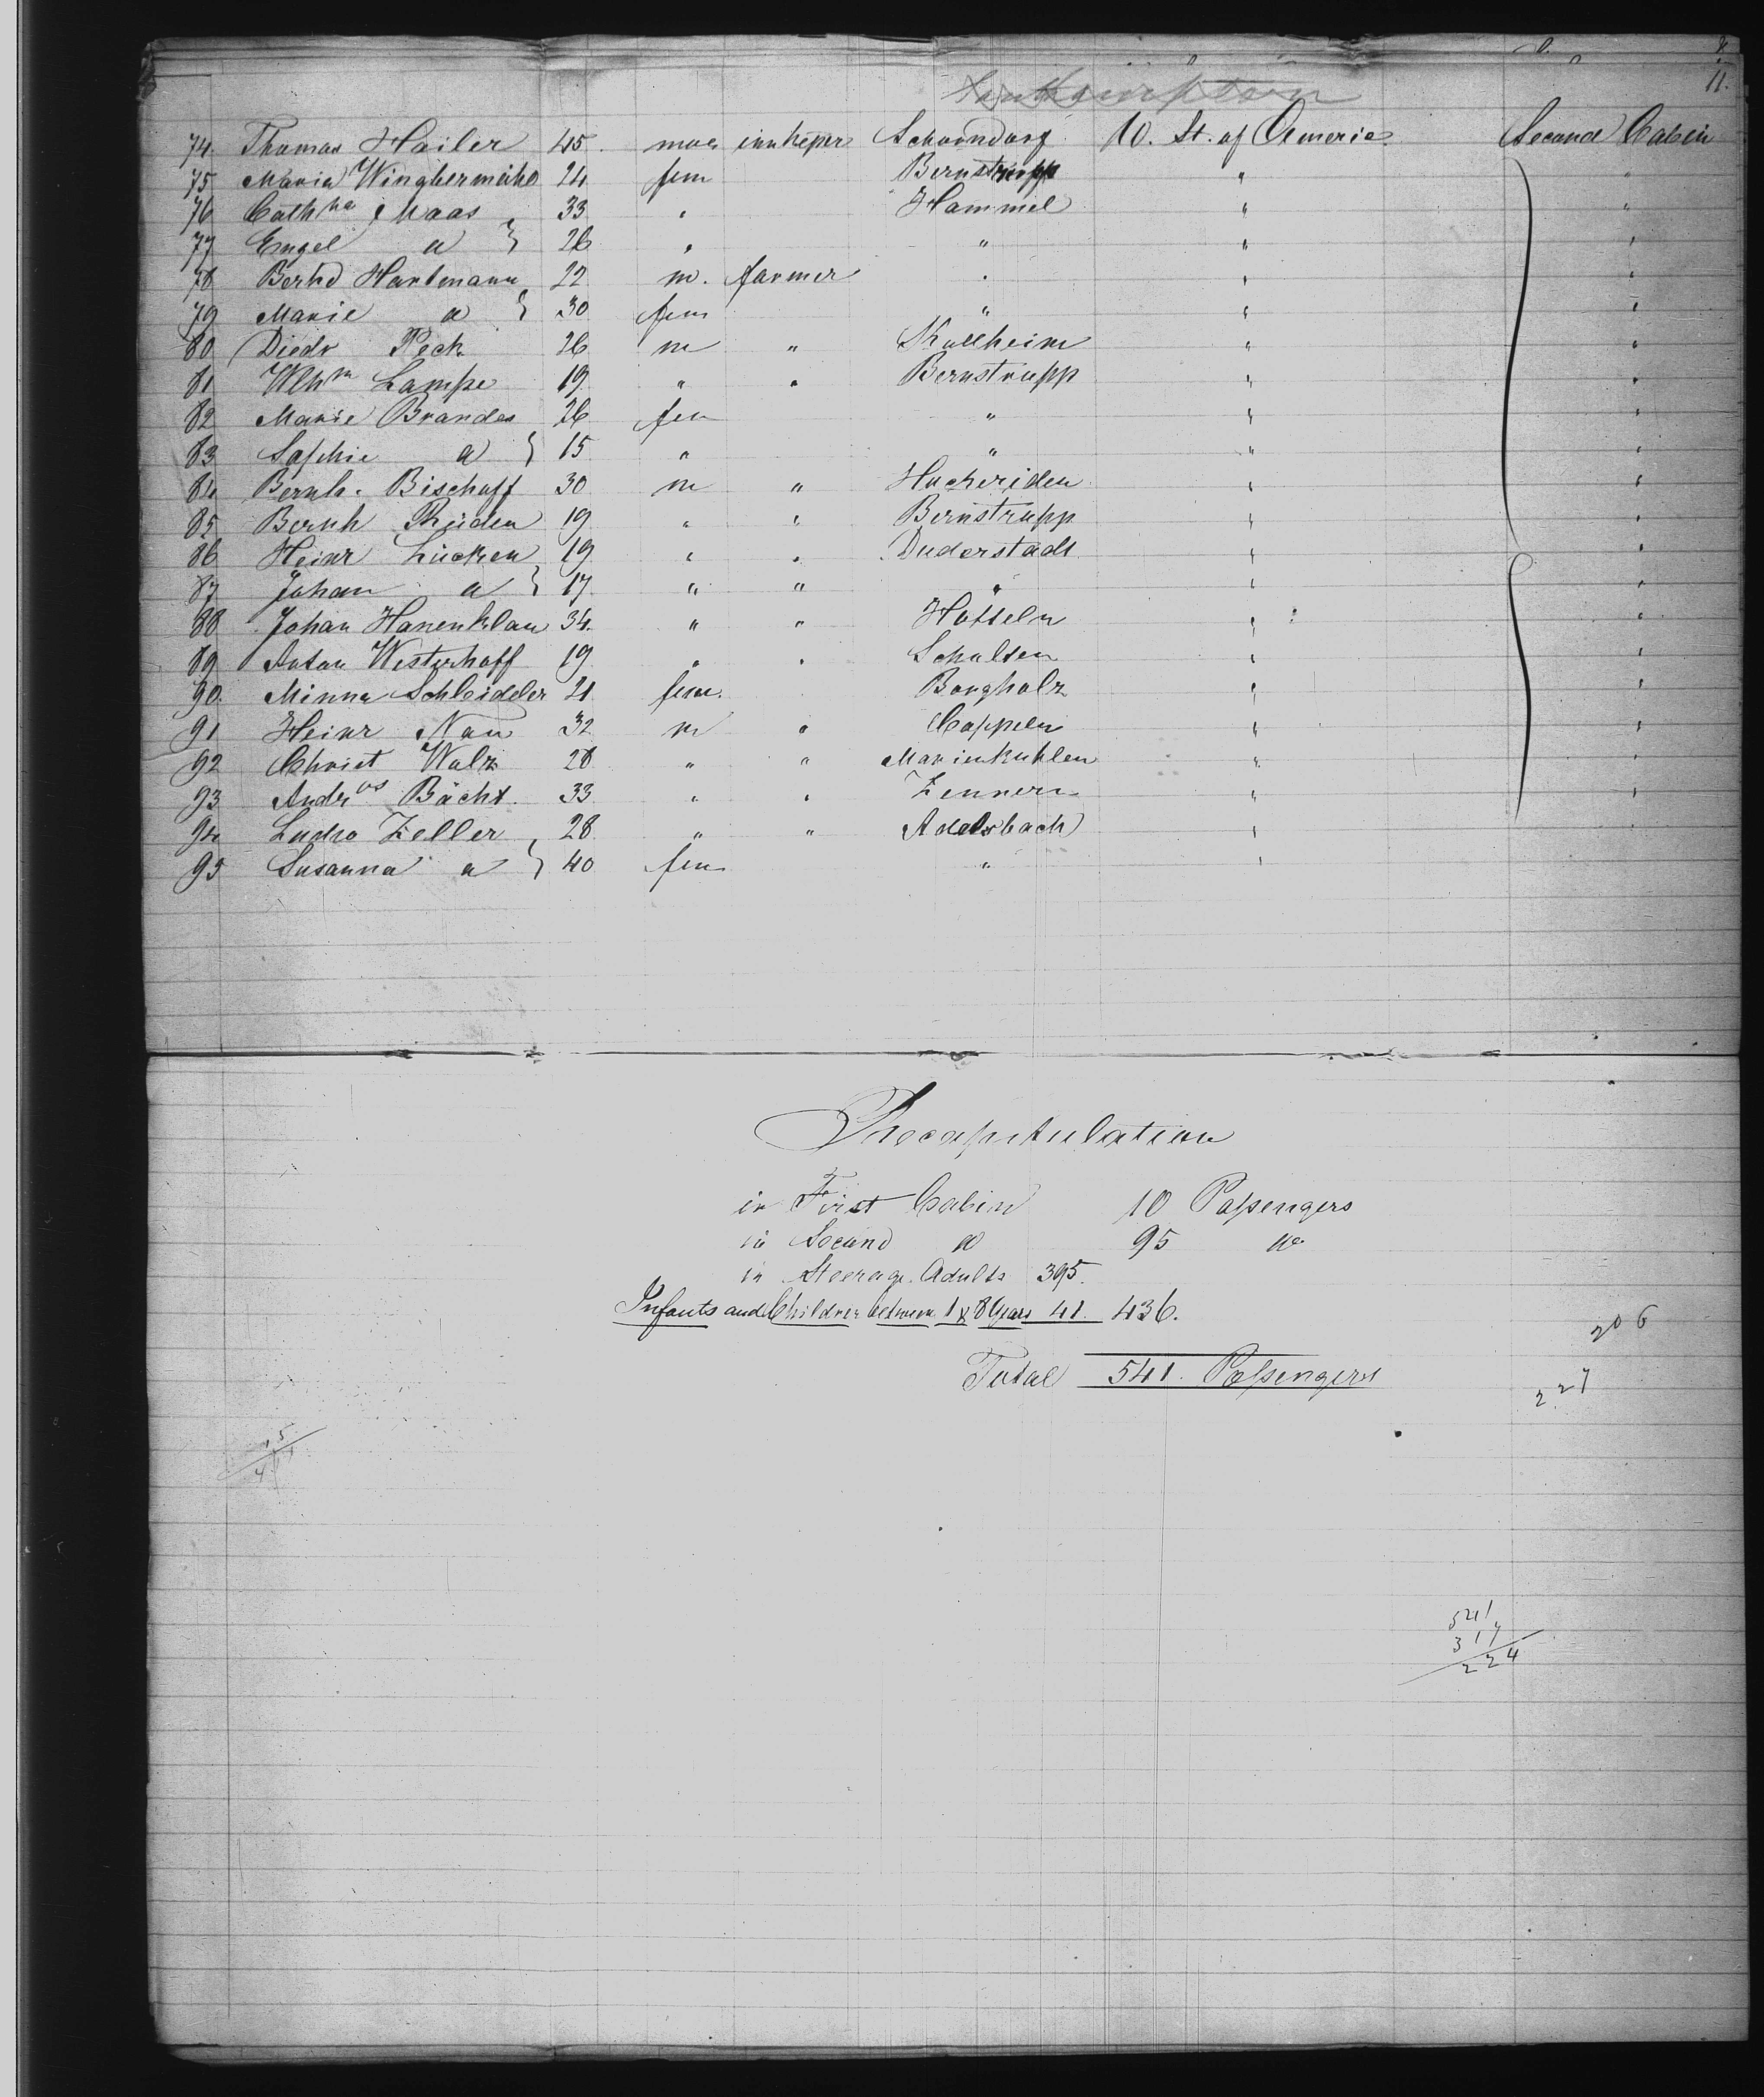 11.
Southampton
74. Thomas Hailer 45. mac innkeper Schorndorf U. St. of America Second Cabin
75 Maria Winghermühl 24 fem Bernstrupp " "
76 Cathna Maas 33 " Hammel " "
77 Engel a } 26 " " " "
78 Bernd Hartmann 22 m. farmer " " "
79 Marie a } 30 fem " " "
80 Diedr Peck 26 m " Kallheim " "
81 Wlhm Lampe 19 " " Bernstrupp " "
82 Marie Brandes 26 fem " " "
83 Sophie a } 15 " " " "
84 Bernh. Bischoff 30 m " Huckeriden " "
85 Bernh Rüden 19 " " Bernstrupp " "
86 Heinr Lücken 19 " " Duderstadt " "
87 Johan a } 17 " " " " "
88 Johan Hanenklau 34. " " Hötteln " "
89 Anton Westerhoff 19 " " Schulten " "
90. Minna Schleidder 21 fem. Borgholz " "
91 Heinr Nau 32 m " Cappeln " "
92 Christ Walz 28 " " Marienkuhlen " "
93 Andras Bächt. 33 " " Zennern " "
94 Ludw Zeller 28 " " Adelsbach "
95 Susanna a } 40 fem " "
Recapitulation
in First Cabin 10 Passengers
in Second do 95 do
in Steerage Adults 395.
Infants and Children between 1 & 8 Years 41 436.
206
Total 541. Passengers
227
541
317
224